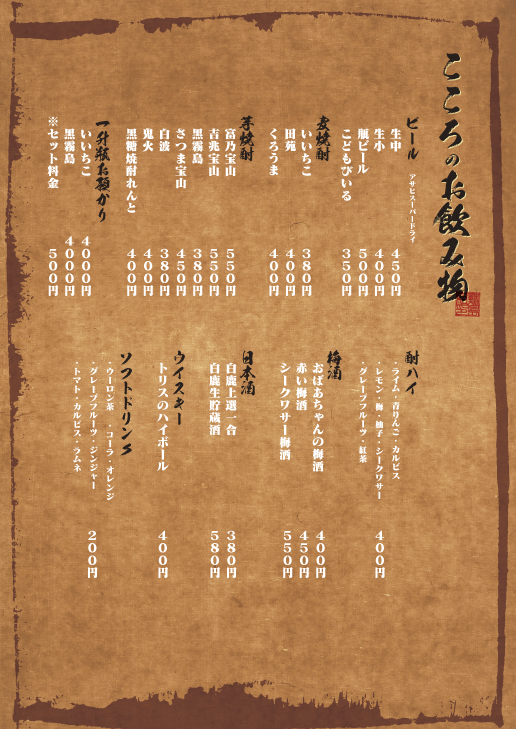 こころのお飲み物
ビール
アサヒスーパードライ
生中 450円
生小 400円
瓶ビール 500円
こどもびいる 350円
麦焼酎
いいちこ 380円
田苑 400円
くろうま 400円
芋焼酎
富乃宝山 550円
吉兆宝山 550円
黒霧島 380円
さつま宝山 450円
白波 380円
鬼火 400円
黒糖焼酎れんと 400円
一升瓶お預かり
いいちこ 4000円
黒霧島 4000円
※セット料金 500円
酎ハイ
・ライム・青りんご・カルピス
・レモン・梅・柚子・シークワサー 400円
・グレープフルーツ・紅茶
梅酒
おばあちゃんの梅酒 400円
赤い梅酒 450円
シークワサー梅酒 550円
日本酒
白鹿上選一合 380円
白鹿生貯蔵酒 580円
ウイスキー
トリスのハイボール 400円
ソフトドリンク
・ウーロン茶 ・コーラ・オレンジ
・グレープフルーツ・ジンジャー 200円
・トマト・カルピス・ラムネ